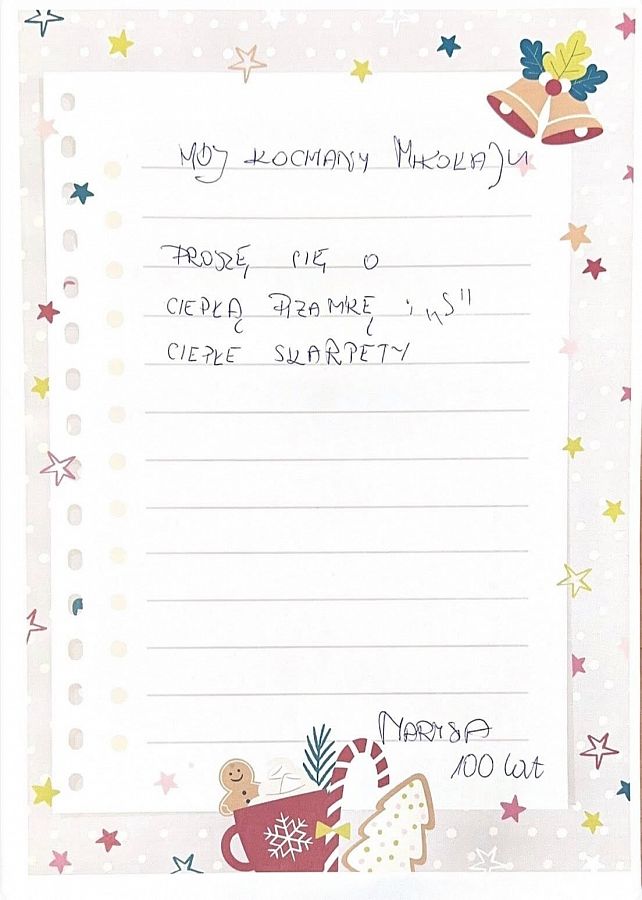 MÓJ KOCHANY MIKOŁAJU
PROSZĘ SIĘ O
CIEPŁĄ PIŻAMKĘ i „S"
CIEPŁE SKARPETY
MARYSIA
100 lat